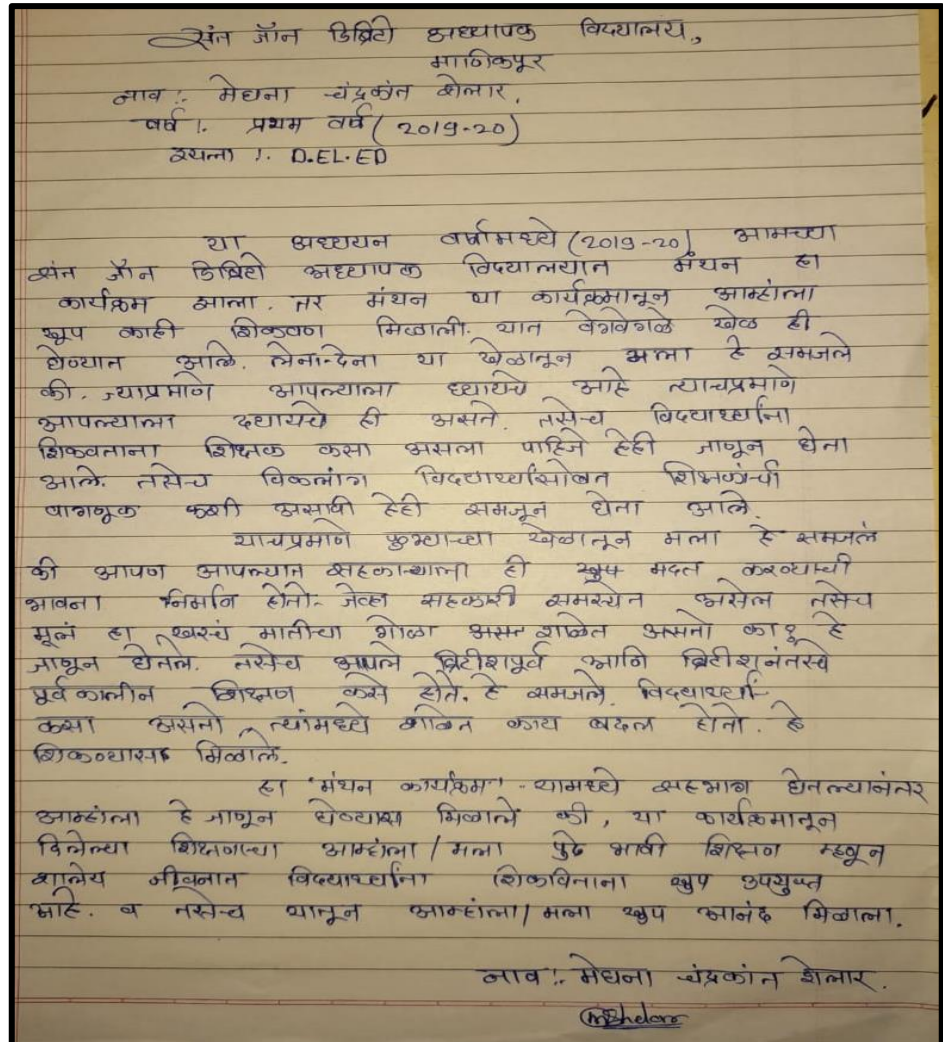 संत जॉन डिब्रिटो अध्यापक विद्यालय,
माणिकपूर
नाव :- मेघना चंद्रकांत शेलार.
वर्ष :- प्रथम वर्ष (2019-20)
इयत्ता :- D.EL.ED
या अध्ययन वर्षामध्ये (2019-20) आमच्या
संत जॉन डिब्रिटो अध्यापक विद्यालयात मंथन हा
कार्यक्रम झाला. तर मंथन या कार्यक्रमातून आम्हांला
खूप काही शिकवण मिळाली. यात वेगवेगळे खेळ ही
घेण्यात आले. लेना-देना या खेळातून मला हे समजले
की. ज्याप्रमाणे आपल्याला घ्यायचे आहे त्याचप्रमाणे
आपल्याला दयायचे ही असते. तसेच विदयार्थ्यांना
शिकवताना शिक्षक कसा असला पाहिजे हेही जाणून घेता
आले. तसेच विकलांग विदयार्थ्यांसोबत शिक्षकांची
वागणूक कशी असावी हेही समजून घेता आले.
याचप्रमाणे फुग्याच्या खेळातून मला हे समजले
की आपण आपल्यात सहकाऱ्याला ही खुप मदत करण्याची
भावना निर्माण होतो- जेव्हा सहकारी समस्येत असेल तसेच
मूलं हा खरचं मातीचा गोळा असत शाळेत असतो का? हे
जाणून घेतले. तसेच आपले ब्रिटीशपूर्व आणि ब्रिटीशनंतरचे
पूर्वकालीन शिक्षण कसे होते. हे समजले. विदयार्थी-
कसा असतो त्यांमध्ये शाळेत काय बदल होतो. हे
शिकण्यास मिळाले.
हा "मंथन कार्यक्रम" - यामध्ये सहभाग घेतल्यानंतर
आम्हांला हे जाणून घेण्यास मिळाले की, या कार्यक्रमातून
दिलेल्या शिक्षणाचा आम्हांला / मला पुढे भावी शिक्षण म्हणून
शालेय जीवनात विदयार्थ्यांना शिकविताना खुप उपयुक्त
आहे. व तसेच यातून आम्हांला/मला खुप आनंद मिळाला.
नाव :- मेघना चंद्रकांत शेलार.
MShelar